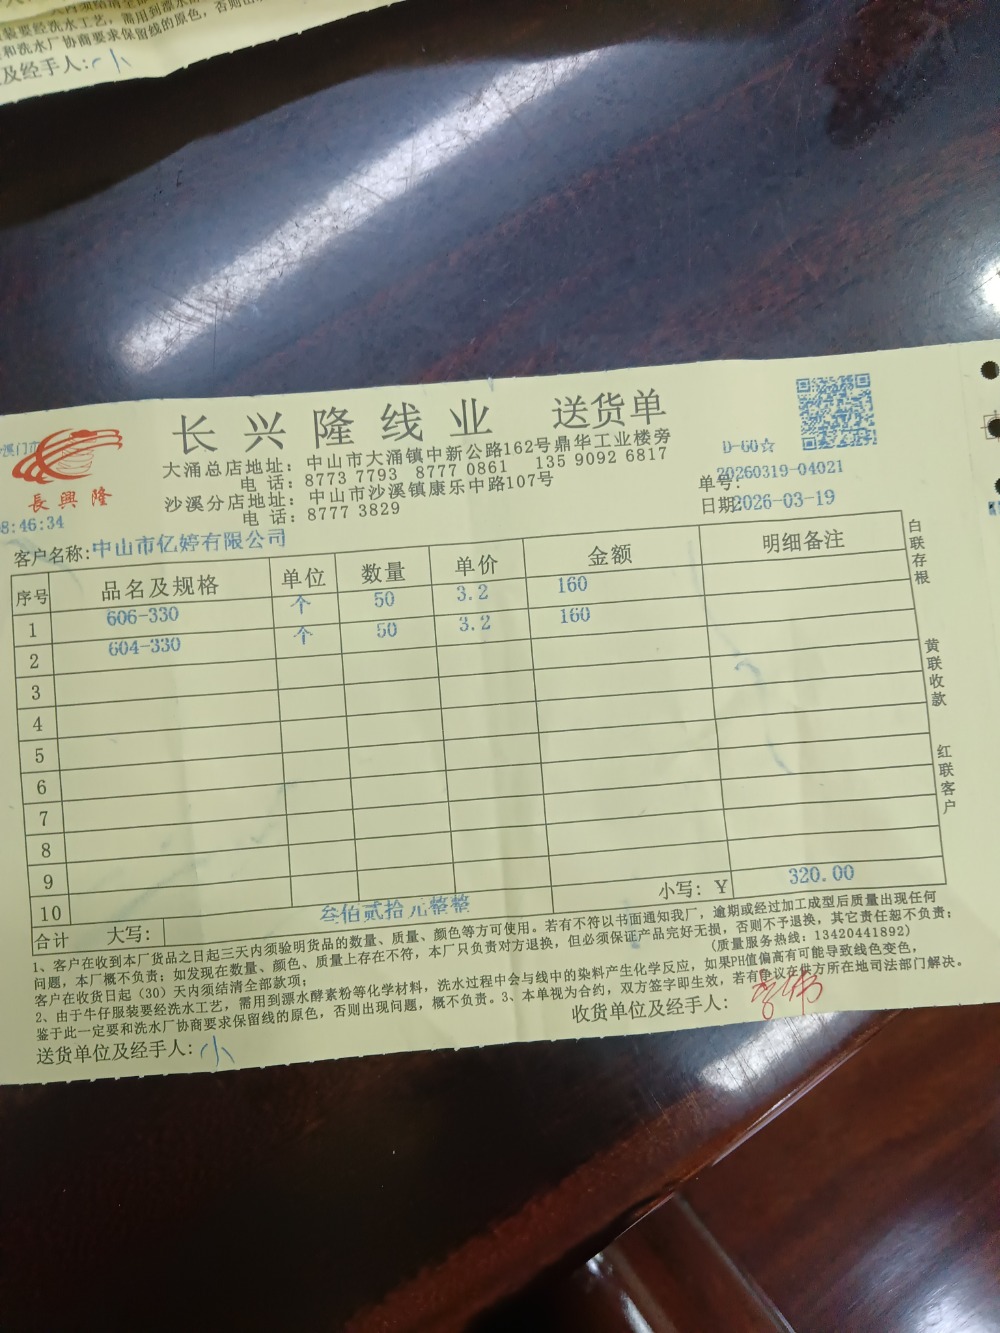 装要经洗水工艺，需用到漂水
和洗水厂协商要求保留线的原色，否则出
及经手人：小
长兴隆线业 送货单
長興隆
大涌总店地址：中山市大涌镇中新公路162号鼎华工业楼旁
电 话：8773 7793 8777 0861 135 9092 6817
沙溪分店地址：中山市沙溪镇康乐中路107号
电 话：8777 3829
D-60☆
单号：20260319-04021
日期2026-03-19
8:46:34
客户名称：中山市亿婷有限公司
序号 品名及规格 单位 数量 单价 金额 明细备注
1 606-330 个 50 3.2 160
2 604-330 个 50 3.2 160
3
4
5
6
7
8
9
10
合计 大写： 叁佰贰拾元整整 小写：¥ 320.00
白联存根
黄联收款
红联客户
1、客户在收到本厂货品之日起三天内须验明货品的数量、质量、颜色等方可使用。若有不符以书面通知我厂，逾期或经过加工成型后质量出现任何
问题，本厂概不负责；如发现在数量、颜色、质量上存在不符，本厂只负责对方退换，但必须保证产品完好无损，否则不予退换，其它责任恕不负责；
客户在收货日起（30）天内须结清全部款项； （质量服务热线：13420441892）
2、由于牛仔服装要经洗水工艺，需用到漂水酵素粉等化学材料，洗水过程中会与线中的染料产生化学反应，如果PH值偏高有可能导致线色变色，
鉴于此一定要和洗水厂协商要求保留线的原色，否则出现问题，概不负责。3、本单视为合约，双方签字即生效，若有争议在供方所在地司法部门解决。
送货单位及经手人：小 收货单位及经手人：